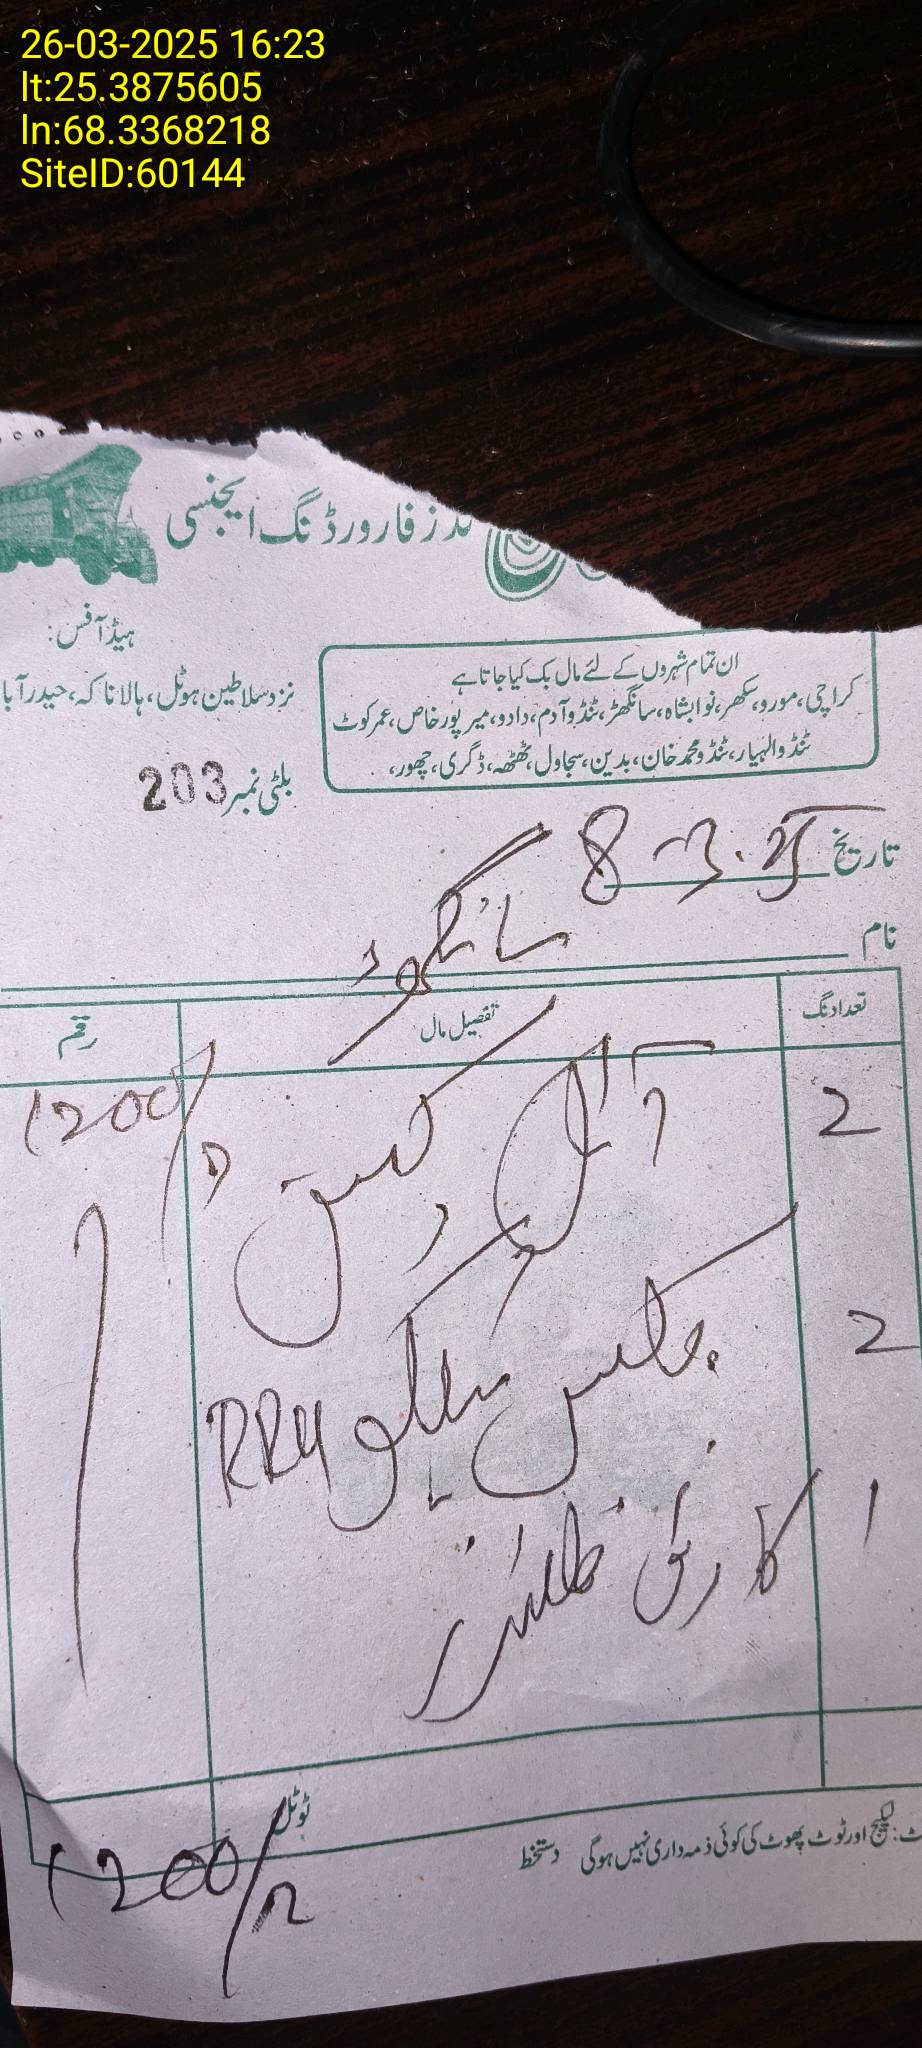 26-03-2025 16:23
lt:25.3875605
ln:68.3368218
SiteID:60144
ڈز فارورڈنگ ایجنسی
ہیڈ آفس:
نزد سلاطین ہوٹل، ہالا ناکہ، حیدرآبا
ان تمام شہروں کے لئے مال بک کیا جاتا ہے
کراچی، مورو، سکھر، نوابشاہ، سانگھڑ، ٹنڈوآدم، دادو، میرپورخاص، عمرکوٹ
ٹنڈوالہیار، ٹنڈو محمد خان، بدین، سجاول، ٹھٹھہ، ڈگری، چھور،
بلٹی نمبر 203
تاریخ 8-3.25
نام سانگھڑ
تعداد نگ تفصیل مال رقم
2 آئل کین 1200/
2 RRU
1 کارٹن
ٹوٹل 1200/
ٹ: لیکیج اور ٹوٹ پھوٹ کی کوئی ذمہ داری نہیں ہوگی دستخط